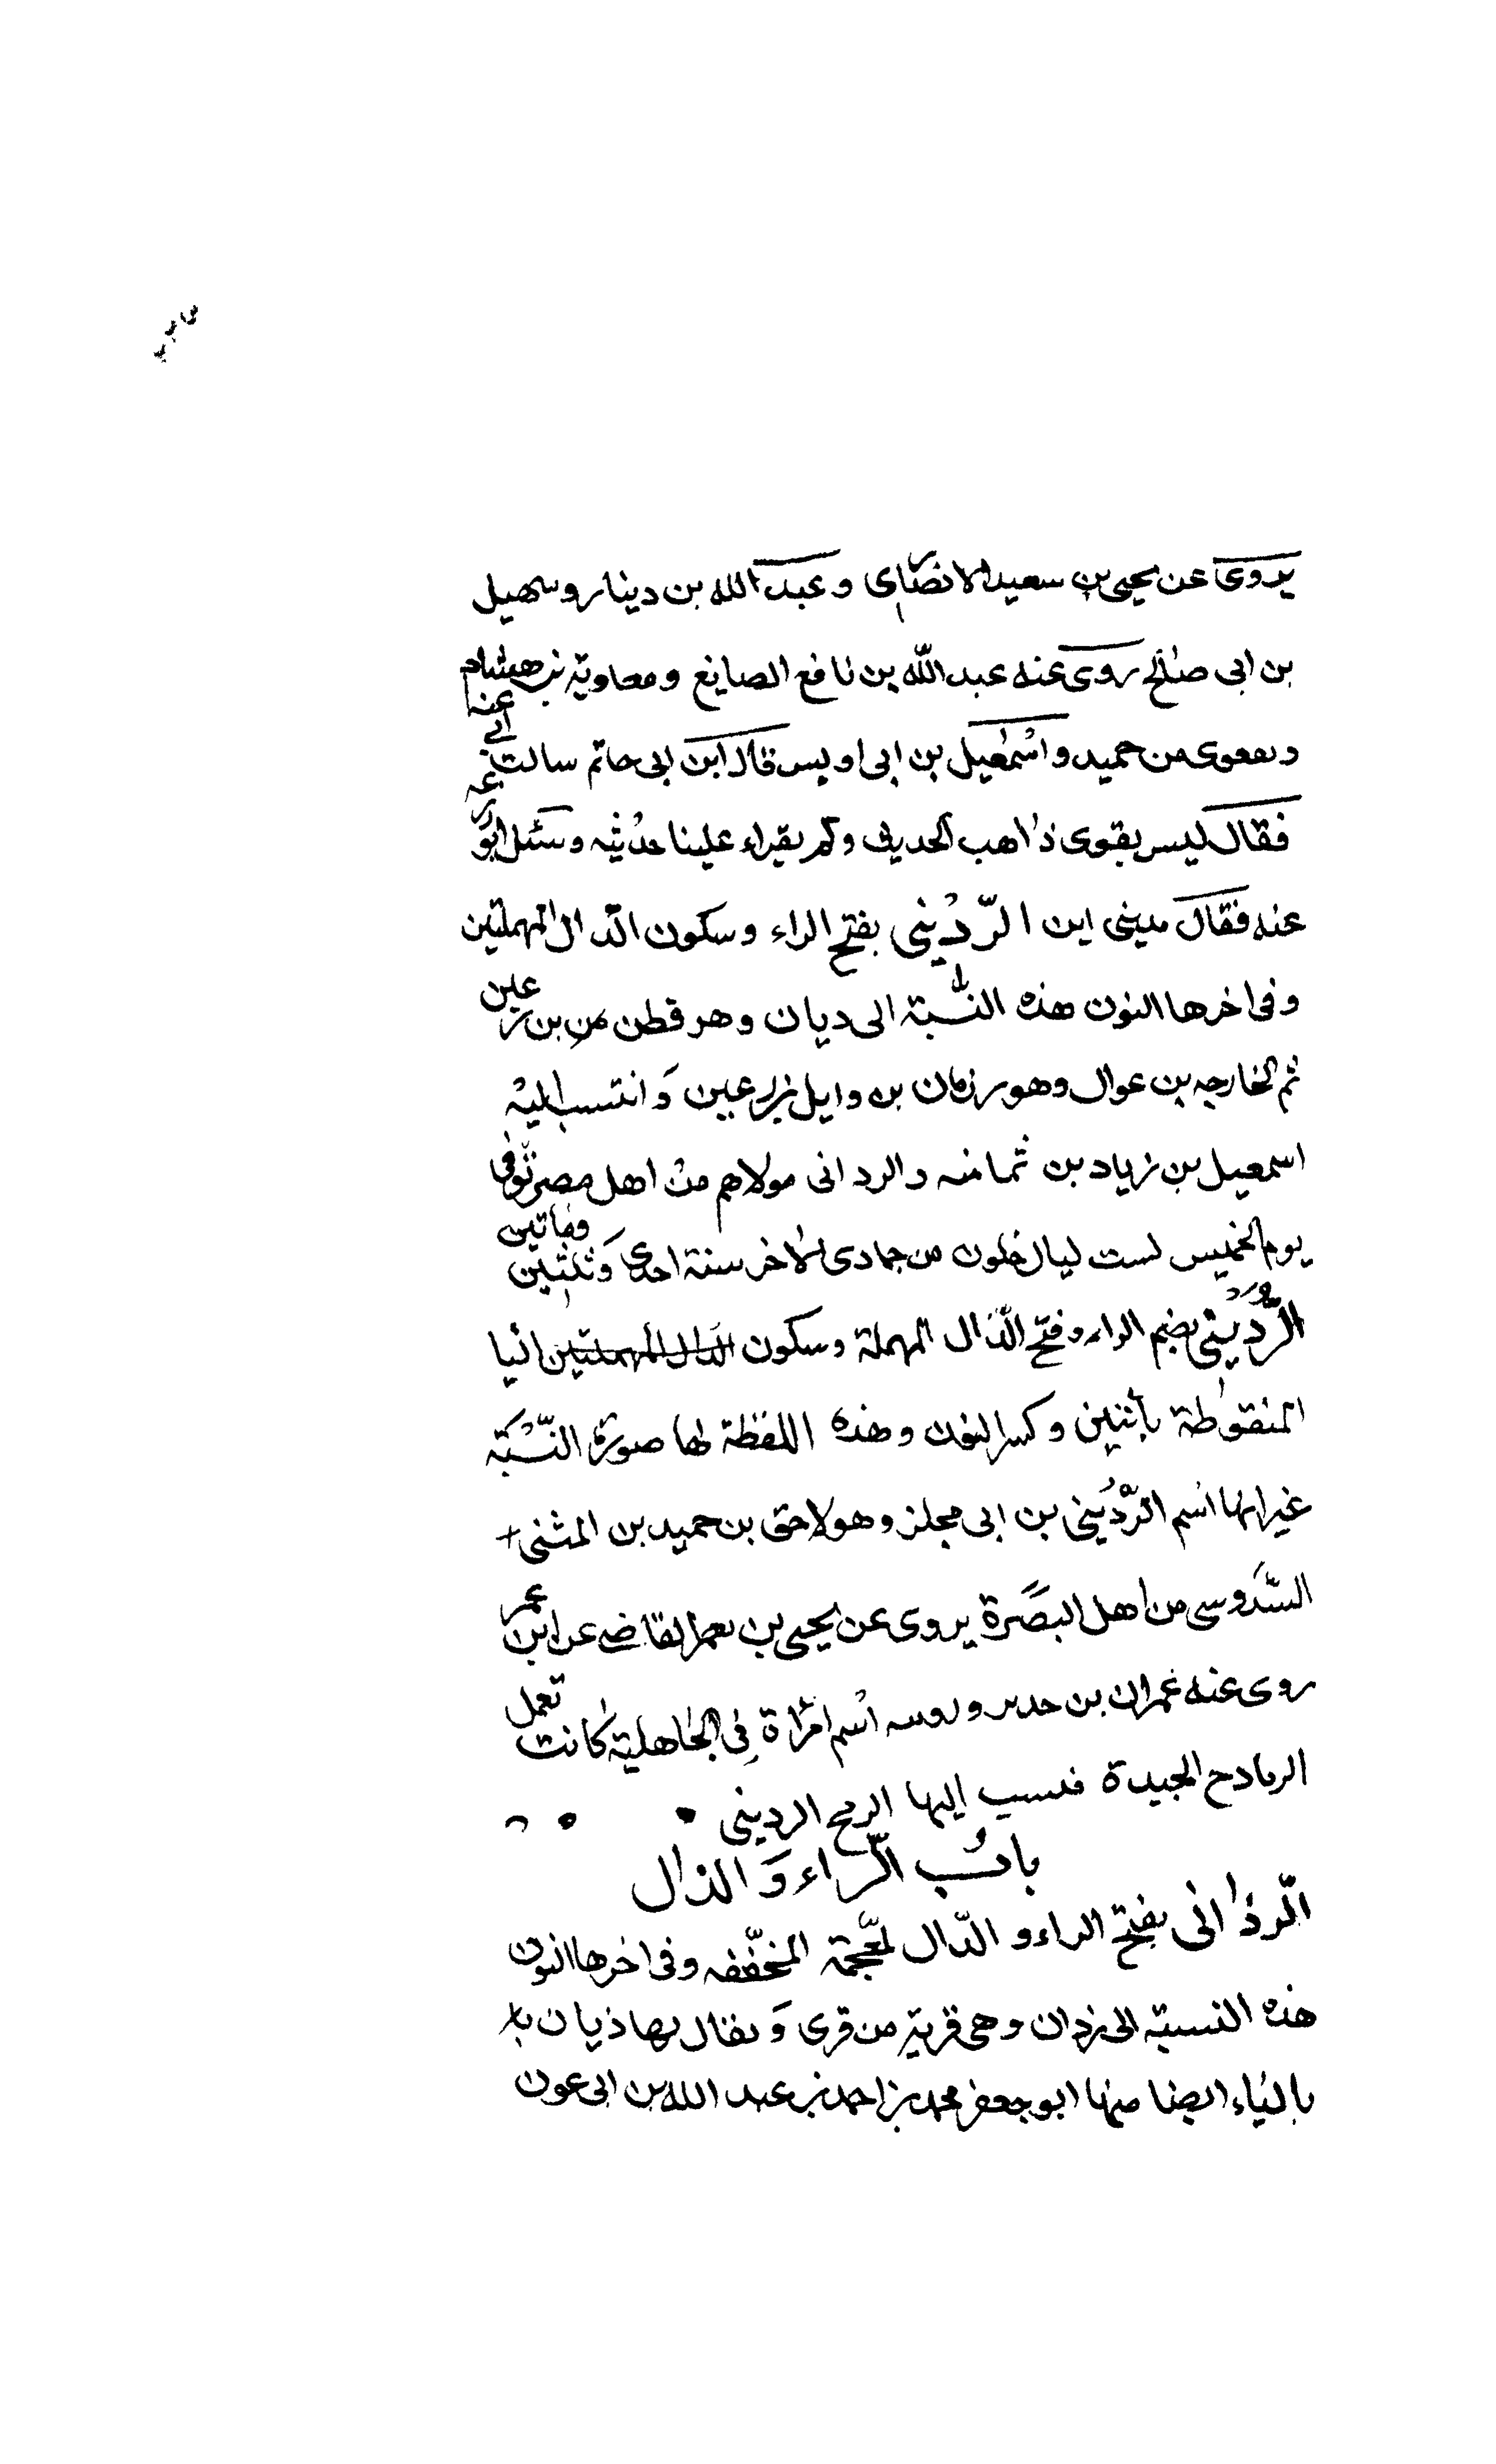 يروى عن يحيى بن سعيد الانصارى وعبد الله بن دينار وسهيل
بن ابى صالح روى عنه عبد الله بن نافع الصايغ ومعاوية بن هشام
ومعوى بن حميد واسمعيل بن ابى اويس قال ابن ابى حاتم سالت ابى عنه
فقال ليس بقوى ذاهب الحديث ولم يقراء علينا حديثه وسئل ابو زرعه
عنه فقال مدينى لين الردينى بفتح الراء وسكون الدال المهملتين
وفى اخرها النون هذه النسبة الى ديان وهو قطن من بن رعين
ثم لخارجه بن عوال وهو رزمان بن وايل بن رعين وانتسب اليه
اسمعيل بن زياد بن ثمامنه والردانى مولاهم من اهل مصر توفى
يوم الخميس لست ليال خلون من جمادى الاخر سنة احدى وثلثين ومايتين
الردينى بضم الراء وفتح الدال المهملة وسكون الدال المهملتين اليا
المنقوطة باثنين وكسر النون وهذه اللفظة لها صورة النسبة
غير انها اسم الردينى بن ابى مجلز وهو لاحق بن حميد بن المثنى
السدوسى من اهل البصرة يروى عن يحيى بن يعمر القاضى عن ابن عمر
روى عنه عمران بن حدير وردينه اسم امراة فى الجاهلية كانت تعمل
الرمادح الجيدة فنسب اليها الرمح الردينى
باب الراء والذال
الرذانى بفتح الراء والذال المعجمة المخففه وفى اخرها النون
هذه النسبة الى رذان وهى قرية من قرى ويقال لها ذيان با
بالياء ايضا منها ابو جعفر محمد بن احمد بن عبد الله بن ابى عون